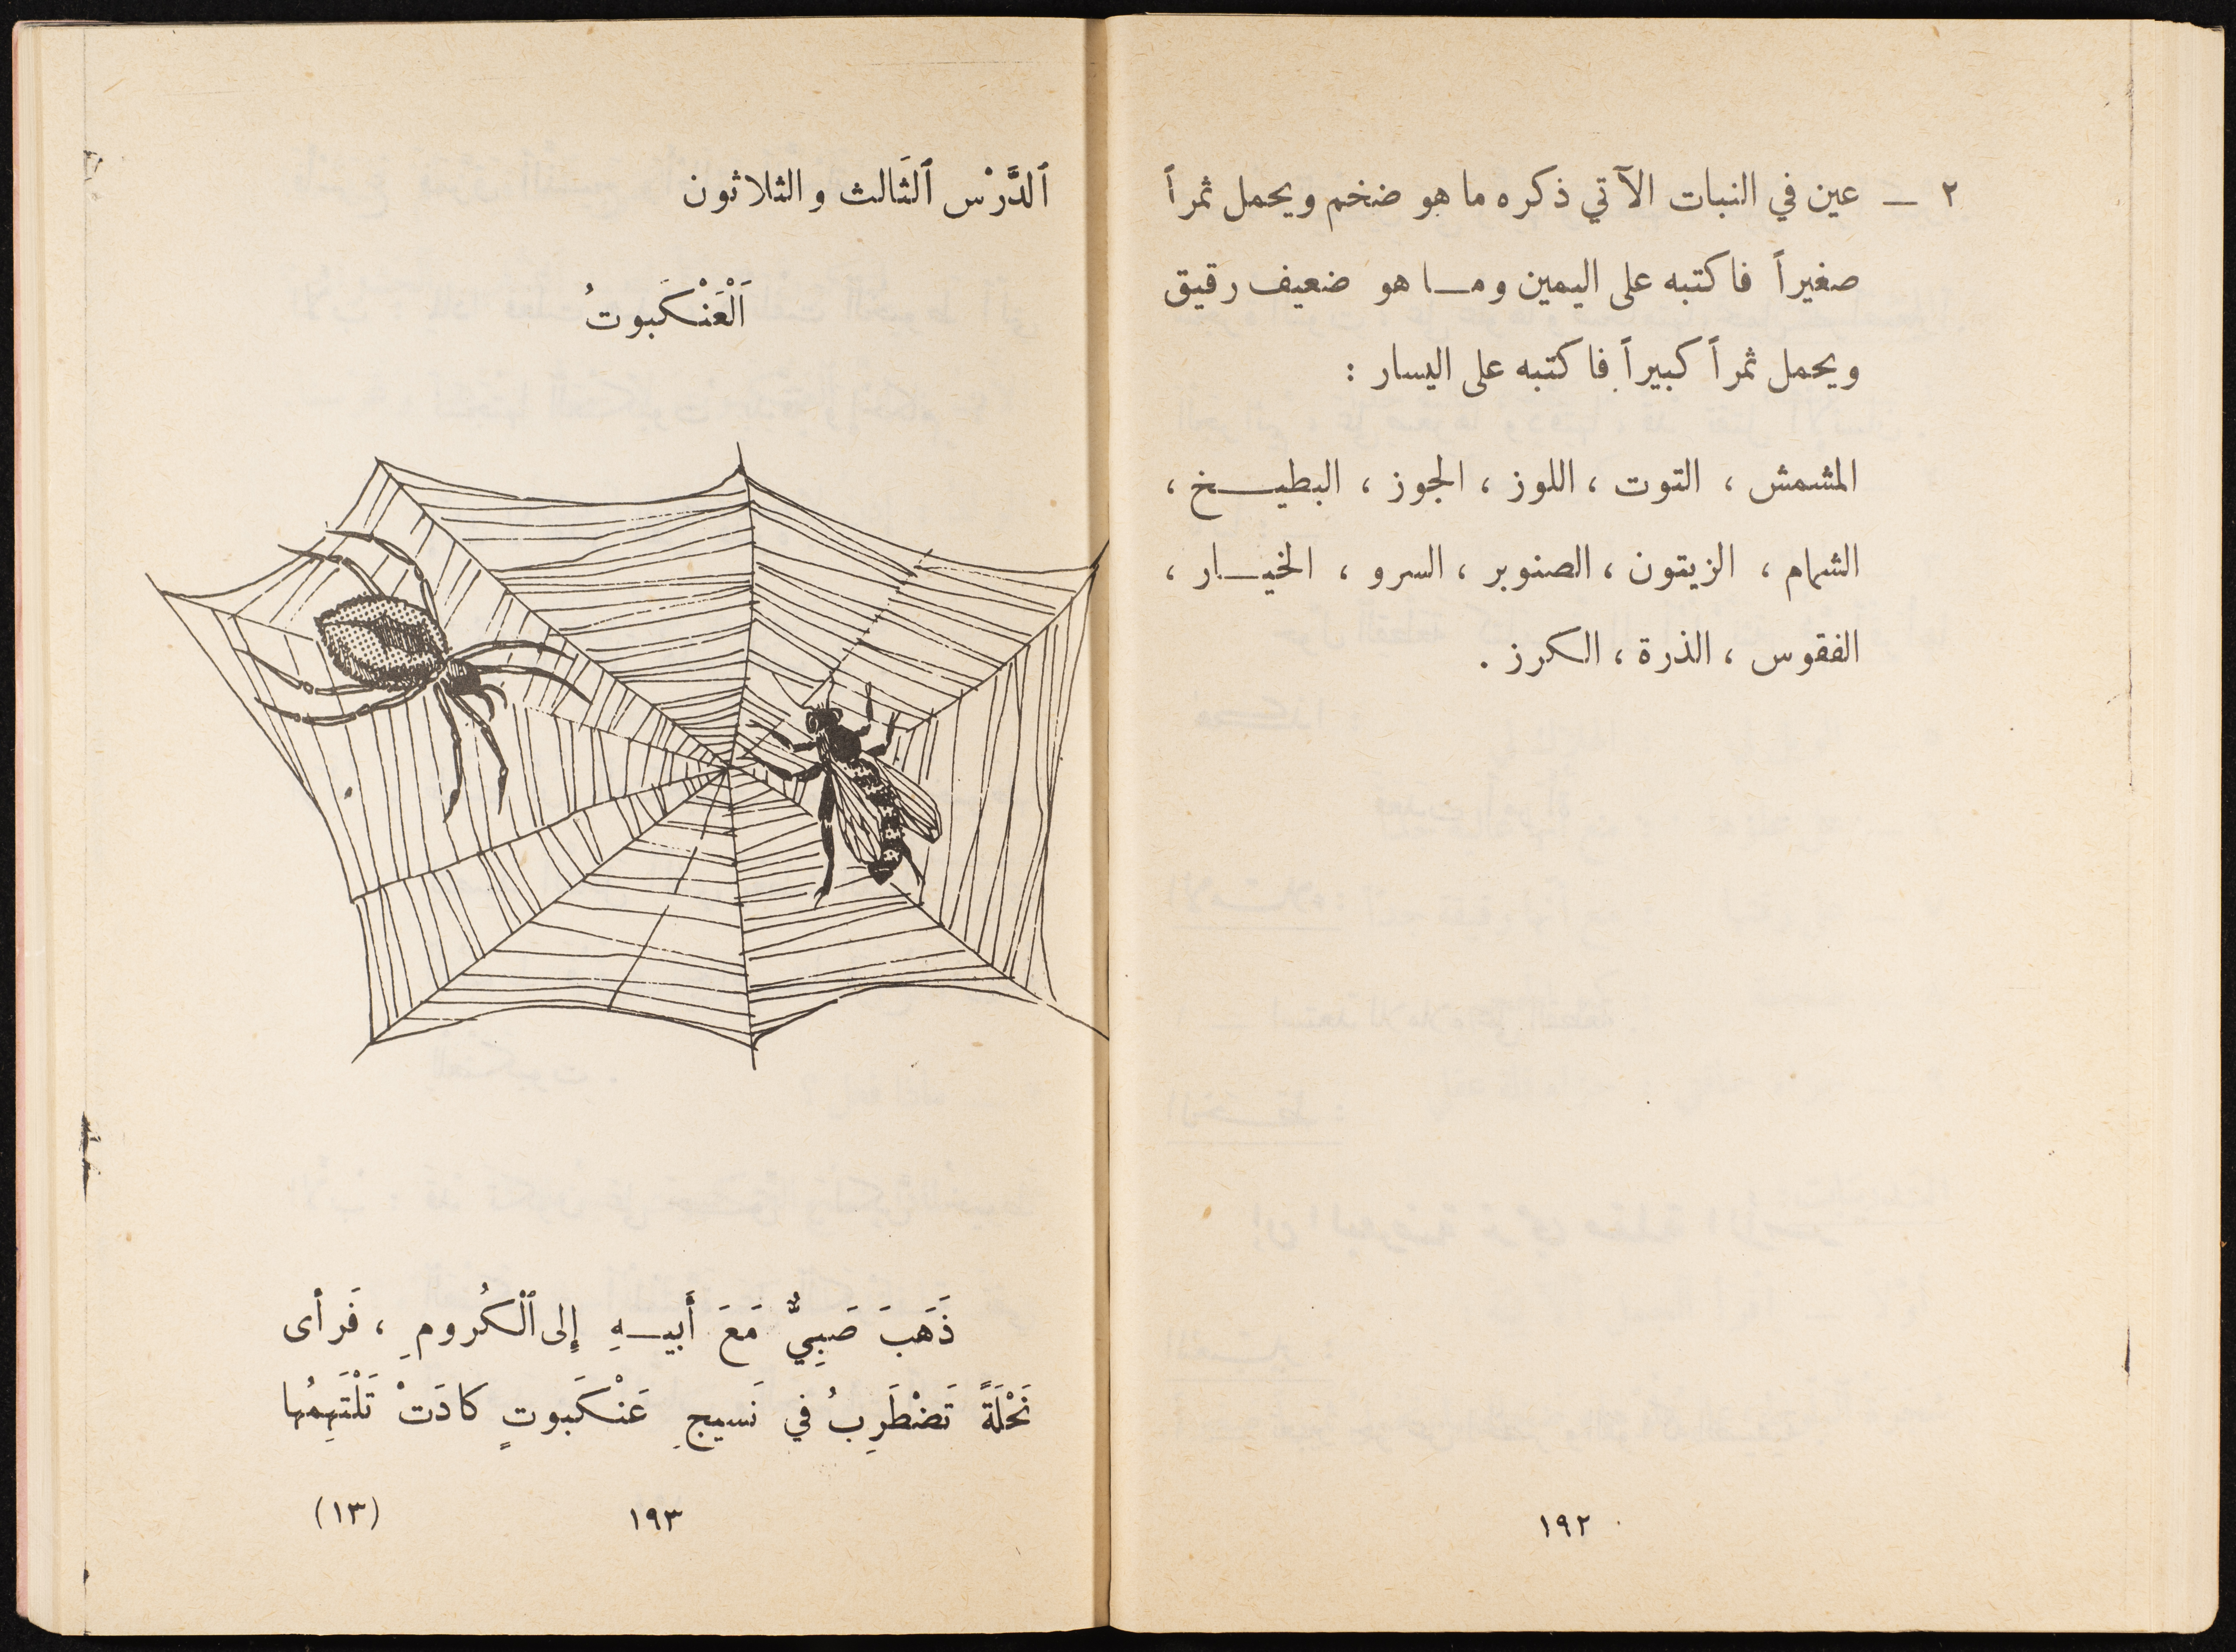 ٢ — عين في النبات الآتي ذكره ما هو ضخم ويحمل ثمراً
صغيراً فاكتبه على اليمين ومـــا هو ضعيف رقيق
ويحمل ثمراً كبيراً فاكتبه على اليسار :
المشمش ، التوت ، اللوز ، الجوز ، البطيـــخ ،
الشمام ، الزيتون ، الصنوبر ، السرو ، الخيـــار ،
الفقوس ، الذرة ، الكرز .
١٩٢
ٱلدَّرْس ٱلثَالث والثلاثون
اَلْعَنْكَبوتُ
ذَهَبَ صَبِيٌّ مَعَ أَبيـــهِ إِلى ٱلْكُرومِ ، فَرأى
نَحْلَةً تَضْطَرِبُ في نَسيجِ عَنْكَبوتٍ كادَتْ تَلْتَهِمُها
١٩٣
(١٣)